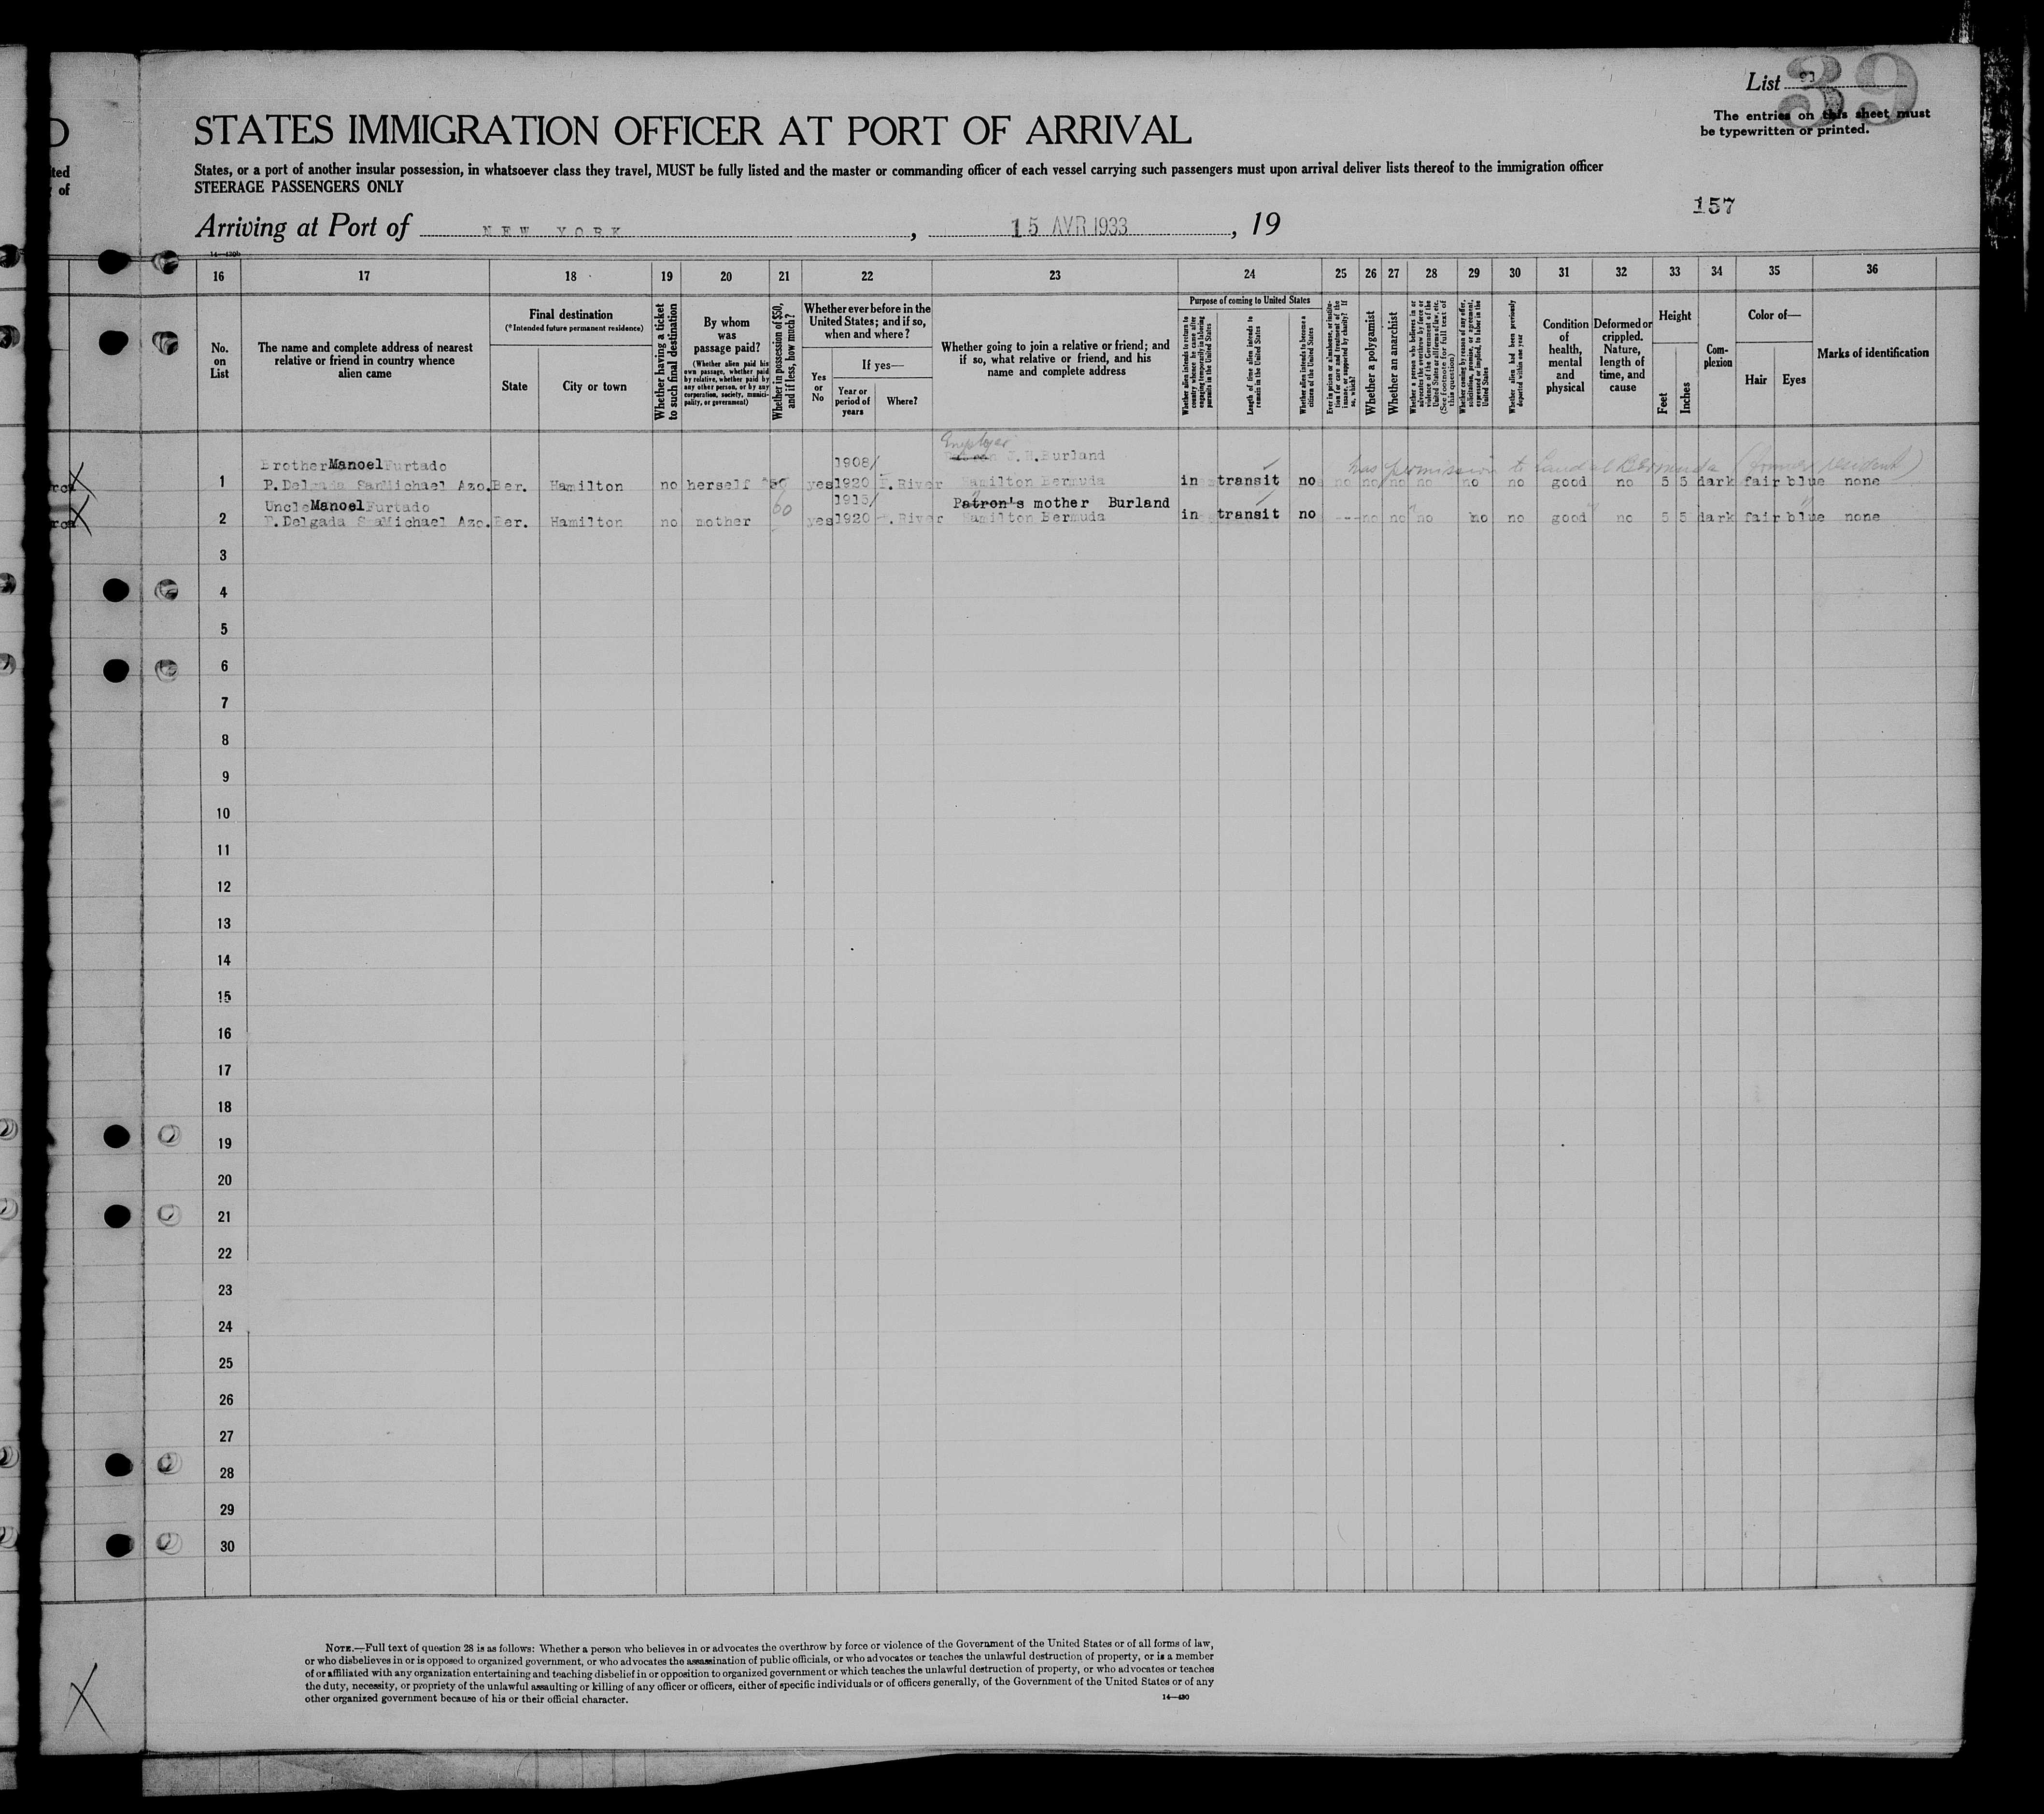 List
39
The entries on this sheet must
be typewritten or printed.
STATES IMMIGRATION OFFICER AT PORT OF ARRIVAL
ted
of
States, or a port of another insular possession, in whatsoever class they travel, MUST be fully listed and the master or commanding officer of each vessel carrying such passengers must upon arrival deliver lists thereof to the immigration officer
STEERAGE PASSENGERS ONLY
157
Arriving at Port of NEW YORK, 15 AVR 1933, 19
16 17 18 19 20 21 22 23 24 25 26 27 28 29 30 31 32 33 34 35 36
No.
on
List
The name and complete address of nearest
relative or friend in country whence
alien came
Final destination
(*Intended future permanent residence)
State
City or town
Whether having a ticket
to such final destination
By whom
was
passage paid?
(Whether alien paid his
own passage, whether paid
by relative, whether paid by
any other person, or by any
corporation, society, munici-
pality, or government)
Whether in possession of $50,
and if less, how much?
Whether ever before in the
United States; and if so,
when and where?
Yes
or
No
If yes—
Year or
period of
years
Where?
Whether going to join a relative or friend; and
if so, what relative or friend, and his
name and complete address
Purpose of coming to United States
Whether alien intends to return to
country whence he came after
engaging temporarily in laboring
pursuits in the United States
Length of time alien intends to
remain in the United States
Whether alien intends to become a
citizen of the United States
Ever in prison or almshouse, or institu-
tion for care and treatment of the
insane, or supported by charity? If
so, which?
Whether a polygamist
Whether an anarchist
Whether a person who believes in or
advocates the overthrow by force or
violence of the Government of the
United States or all forms of law, etc.
(See footnote for full text of
this question)
Whether coming by reason of any offer,
solicitation, promise, or agreement,
expressed or implied, to labor in the
United States
Whether alien had been previously
deported within one year
Condition
of
health,
mental
and
physical
Deformed or
crippled.
Nature,
length of
time, and
cause
Height
Feet
Inches
Com-
plexion
Color of—
Hair
Eyes
Marks of identification
Employer
Brother Manoel Furtado 1908/ J.H.Burland has permission to land at Bermuda (former resident)
1 P.Delgada San Michael Azo. Ber. Hamilton no herself 50 yes 1920 F.River Hamilton Bermuda in transit no no no no no no no good no 5 5 dark fair blue none
Uncle Manoel Furtado 60 1915/ Patron's mother Burland
2 P.Delgada San Michael Azo. Ber. Hamilton no mother yes 1920 F.River Hamilton Bermuda in transit no --- no no no no no good no 5 5 dark fair blue none
3
4
5
6
7
8
9
10
11
12
13
14
15
16
17
18
19
20
21
22
23
24
25
26
27
28
29
30
NOTE.—Full text of question 28 is as follows: Whether a person who believes in or advocates the overthrow by force or violence of the Government of the United States or of all forms of law,
or who disbelieves in or is opposed to organized government, or who advocates the assassination of public officials, or who advocates or teaches the unlawful destruction of property, or is a member
of or affiliated with any organization entertaining and teaching disbelief in or opposition to organized government or which teaches the unlawful destruction of property, or who advocates or teaches
the duty, necessity, or propriety of the unlawful assaulting or killing of any officer or officers, either of specific individuals or of officers generally, of the Government of the United States or of any
other organized government because of his or their official character.
14—430